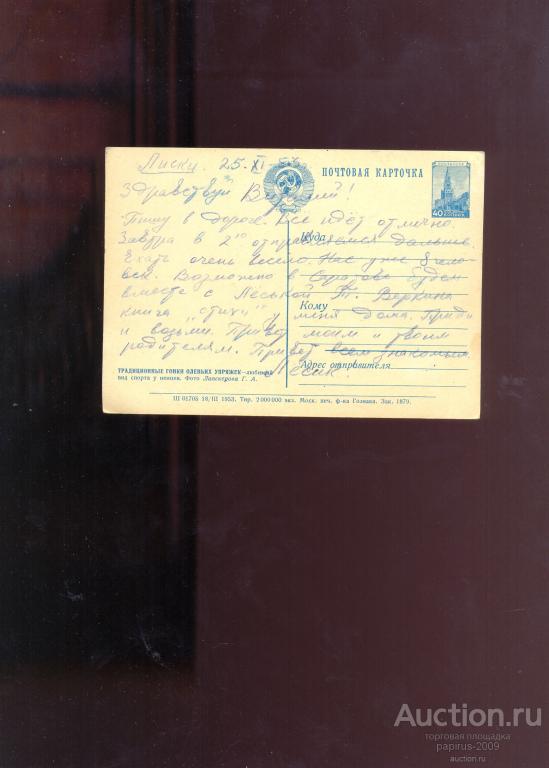 Лиски. 25-XI-53 г.
Здравствуй
ПОЧТОВАЯ КАРТОЧКА
40
Пишу в дороге. Все идёт отлично.
Завтра в 2 отправляемся дальше.
Куда
Ехать очень весело. Нас уже 8 чело-
век. Возможно в Саратове будем
вместе с Лёськой Т. Веркина
Кому
книга "стихи" у меня дома. Приди
и возьми. Привет моим и твоим
родителям. Привет всем знакомым.
Адрес отправителя
ТРАДИЦИОННЫЕ ГОНКИ ОЛЕНЬИХ УПРЯЖЕК—любимый
вид спорта у ненцев. Фото Лапскерова Г. А.
Ш 01705 18/III 1953. Тир. 2 000 000 экз. Моск. печ. ф-ка Гознака. Зак. 1879.
Auction.ru
торговая площадка
papirus-2009
auction.ru